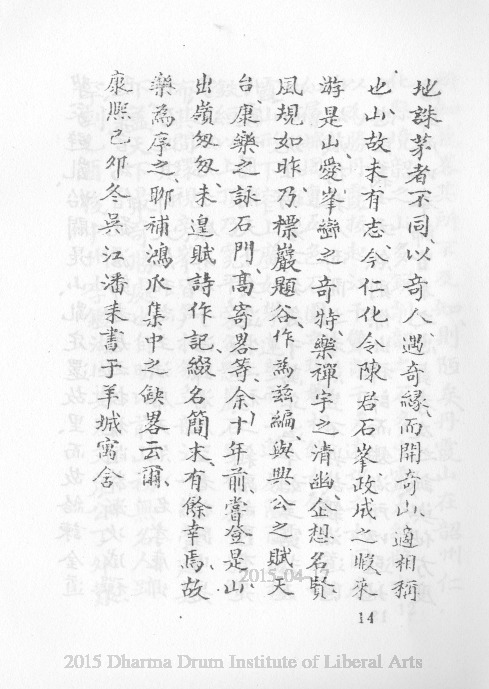 地誅茅者不同、以奇人、遇奇緣、而開奇山、適相稱
也、山故未有志、今仁化令陳君石峯、政成之暇、來
游是山、愛峯巒之奇特、樂禪宇之清幽、企想名賢、
風規如昨、乃標巖題谷、作爲茲編、與興公之賦天
台、康樂之詠石門、高寄畧等、余十年前、嘗登是山、
出嶺匆匆、未遑賦詩作記、綴名簡末、有餘幸焉、故
樂爲序之、聊補鴻爪集中之缺畧云爾、
康熙己卯冬吳江潘耒書于羊城寓舍
14
2015-04-13
2015 Dharma Drum Institute of Liberal Arts